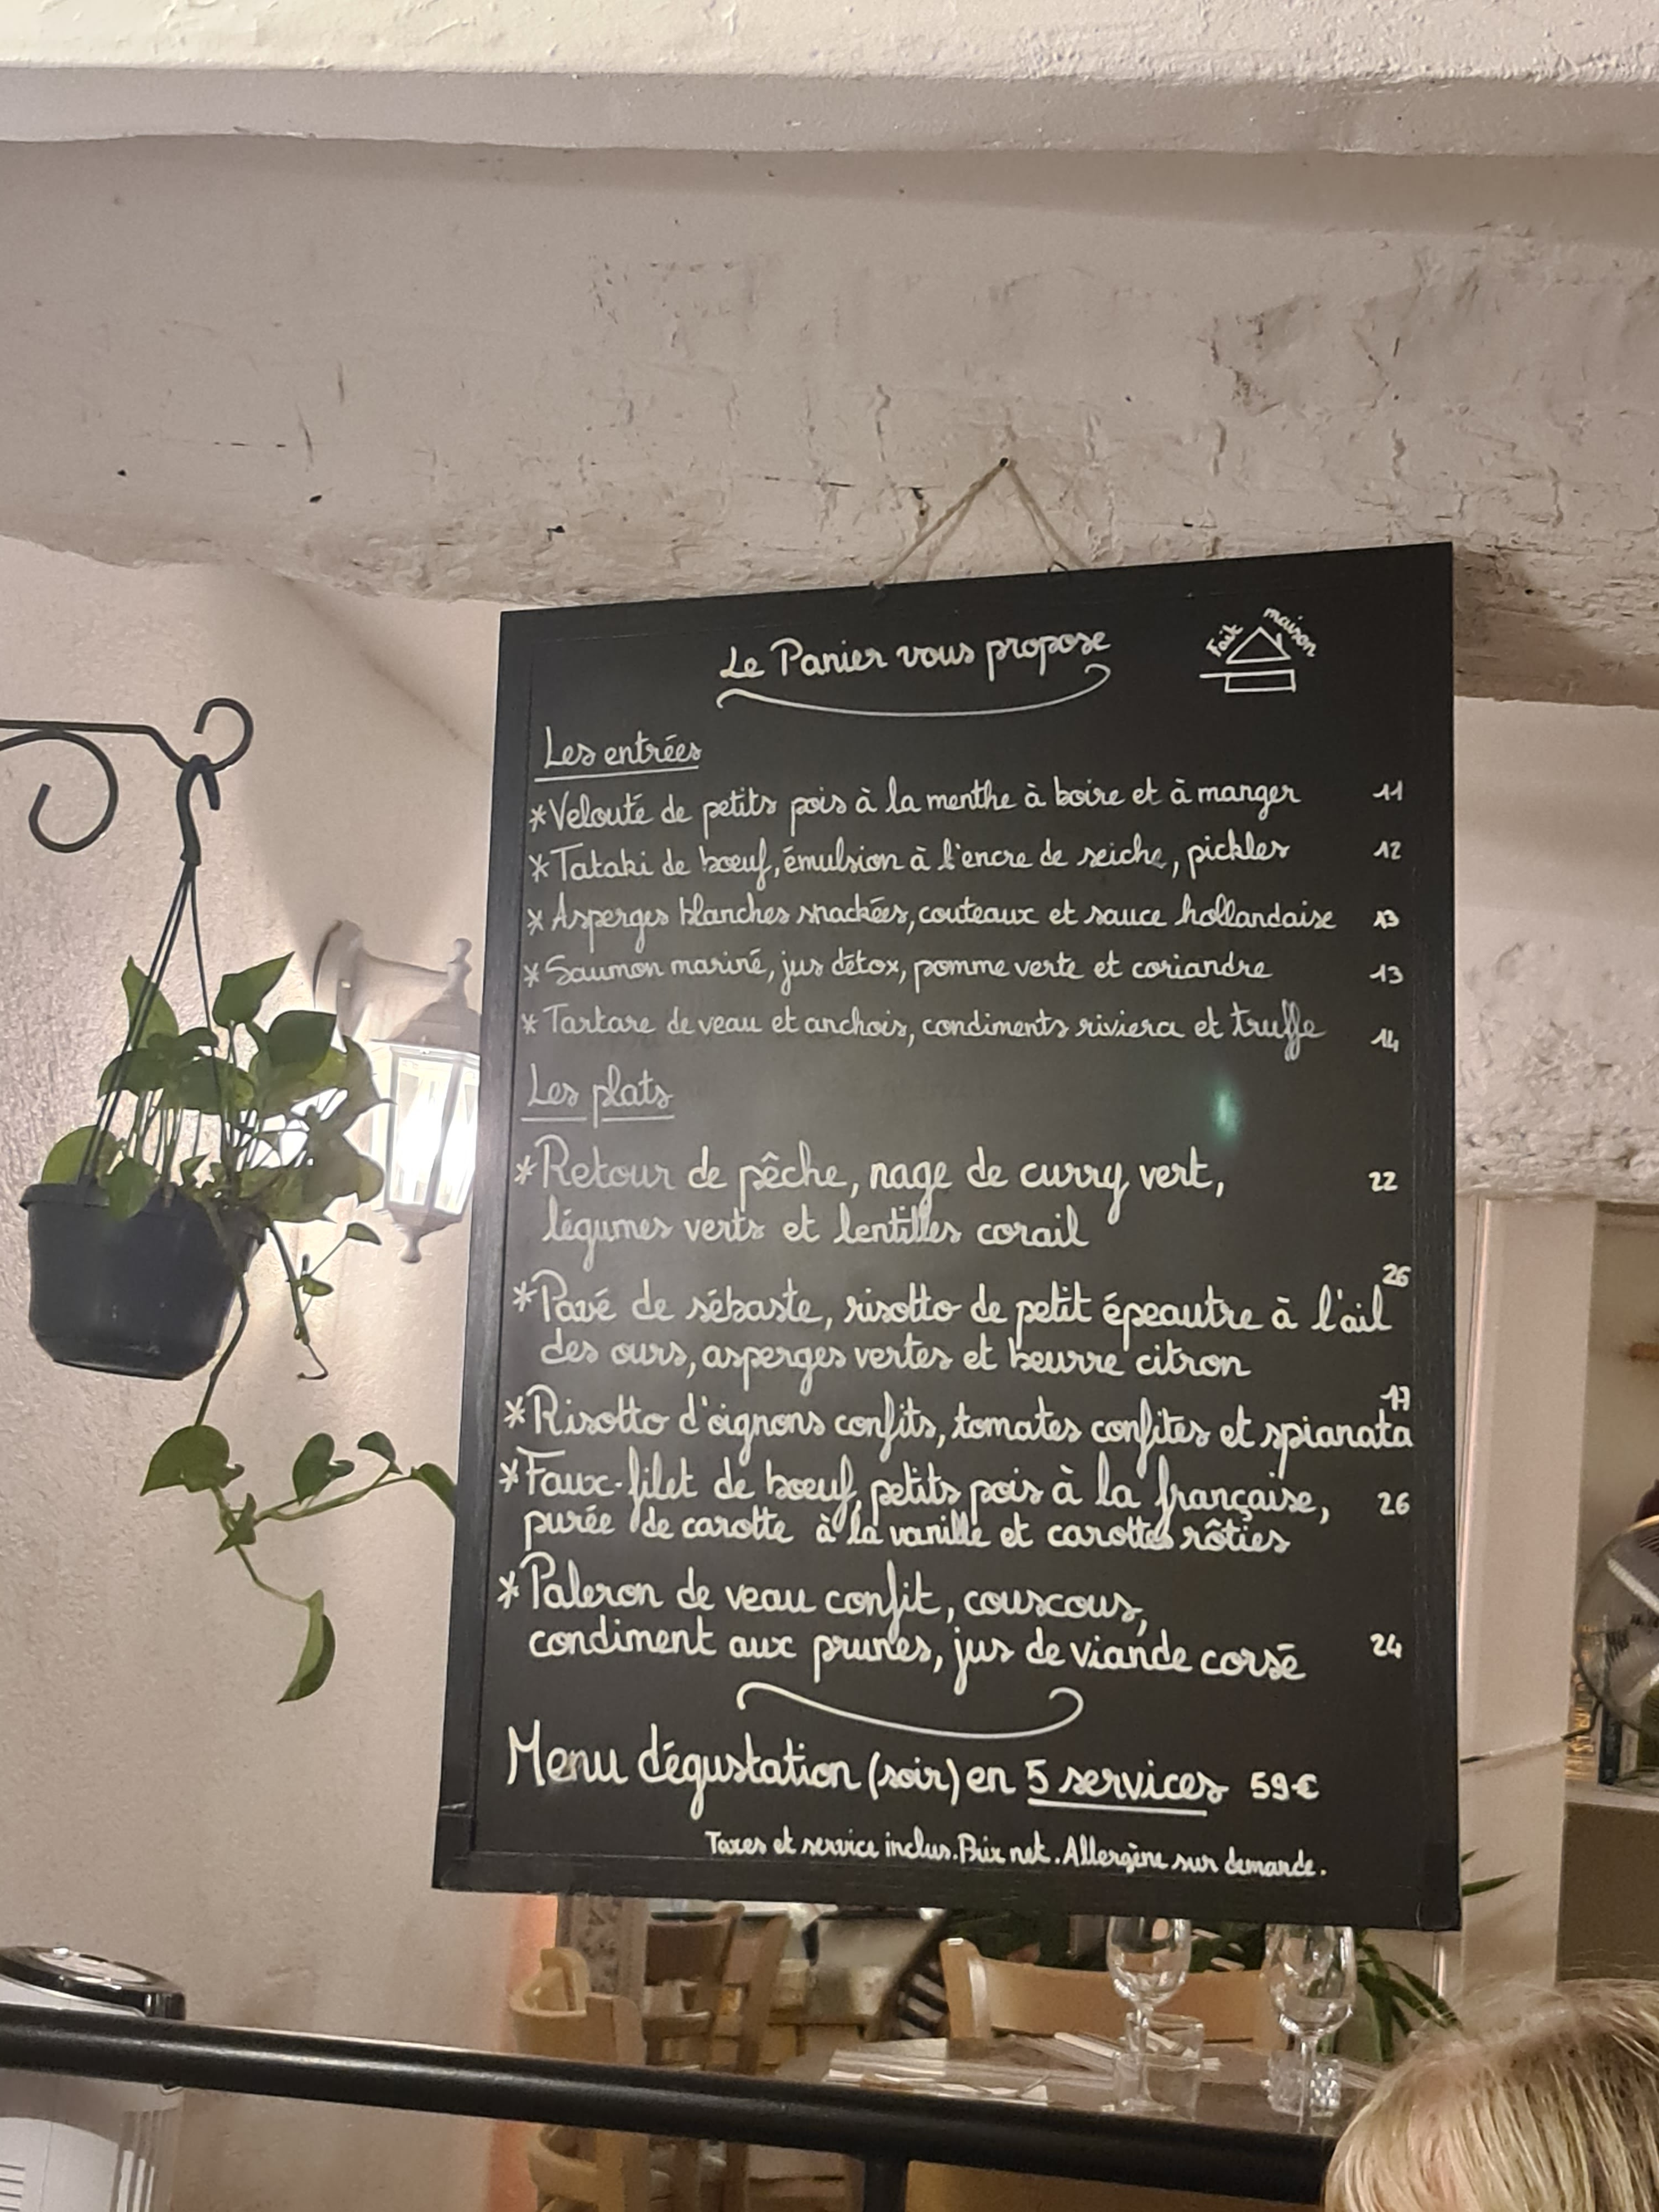 Le Panier vous propose
Fait maison
Les entrées
*Velouté de petits pois à la menthe à boire et à manger 11
*Tataki de bœuf, émulsion à l'encre de seiche, pickles 12
*Asperges blanches snackées, couteaux et sauce hollandaise 13
*Saumon mariné, jus détox, pomme verte et coriandre 13
*Tartare de veau et anchois, condiments riviera et truffe 14
Les plats
*Retour de pêche, nage de curry vert, 22
légumes verts et lentilles corail
*Pavé de sébaste, risotto de petit épeautre à l'ail 26
des ours, asperges vertes et beurre citron
*Risotto d'oignons confits, tomates confites et spianata 17
*Faux-filet de bœuf, petits pois à la française, 26
purée de carotte à la vanille et carottes rôties
*Paleron de veau confit, couscous,
condiment aux prunes, jus de viande corsé 24
Menu dégustation (soir) en 5 services 59€
Taxes et service inclus. Prix net. Allergène sur demande.